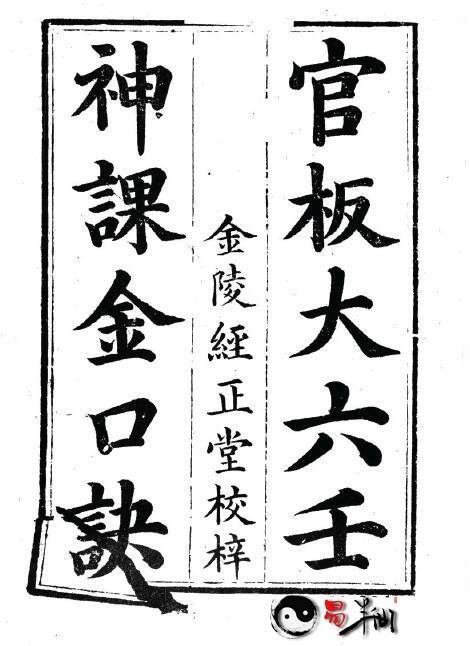 官板大六壬
金陵經正堂校梓
神課金口訣
易